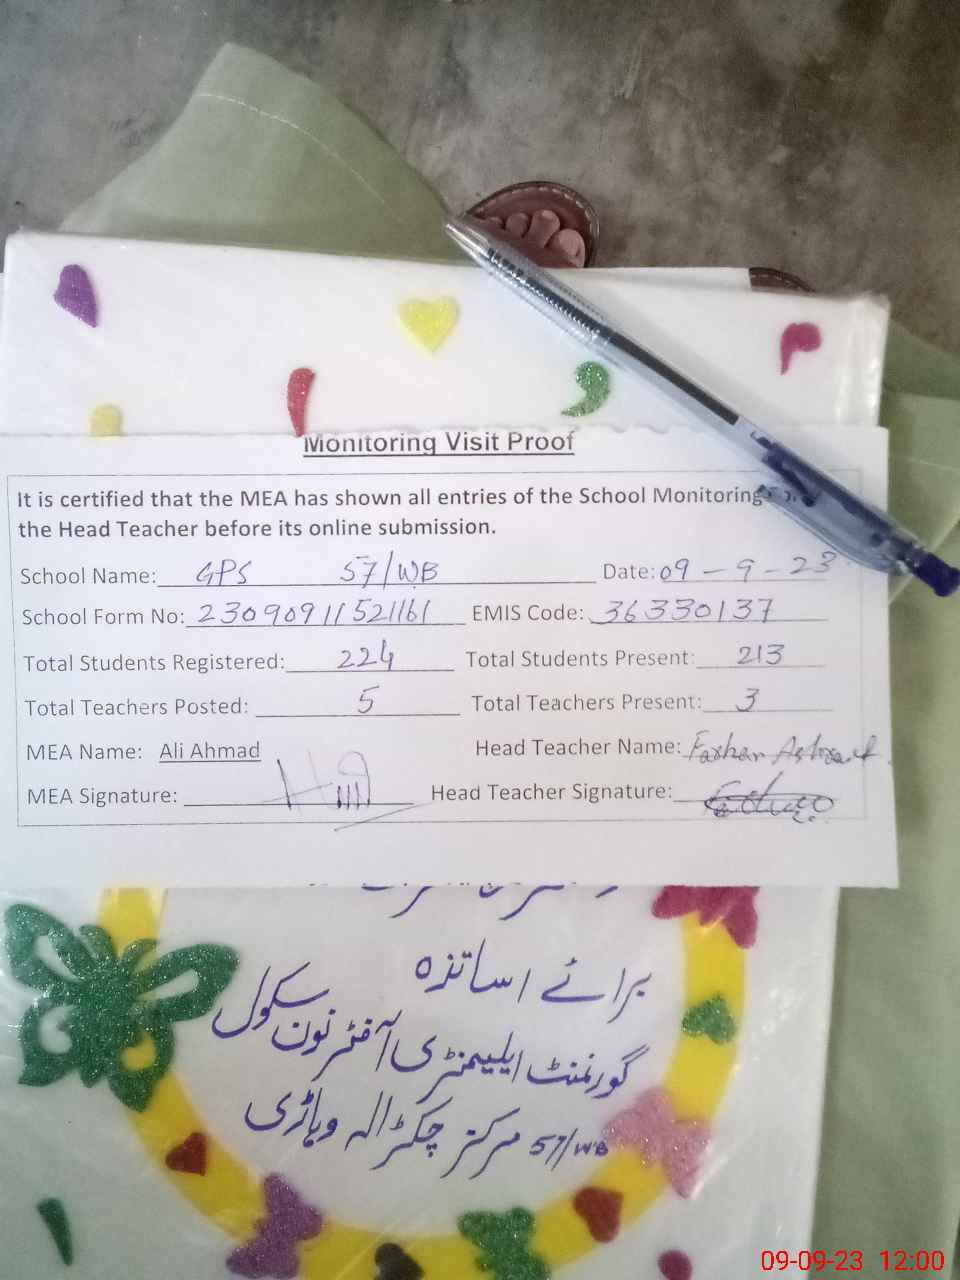 Monitoring Visit Proof
It is certified that the MEA has shown all entries of the School Monitoring
the Head Teacher before its online submission.
School Name: GPS 57/WB Date: 09-9-23
School Form No: 23090911521161 EMIS Code: 36330137
Total Students Registered: 224 Total Students Present: 213
Total Teachers Posted: 5 Total Teachers Present: 3
MEA Name: Ali Ahmad Head Teacher Name: Farhan Ashraf
MEA Signature: Head Teacher Signature:
برائے اساتذہ
گورنمنٹ ایلیمنٹری آفٹر نون سکول
57/WB مرکز چکڑالہ وہاڑی
09-09-23 12:00